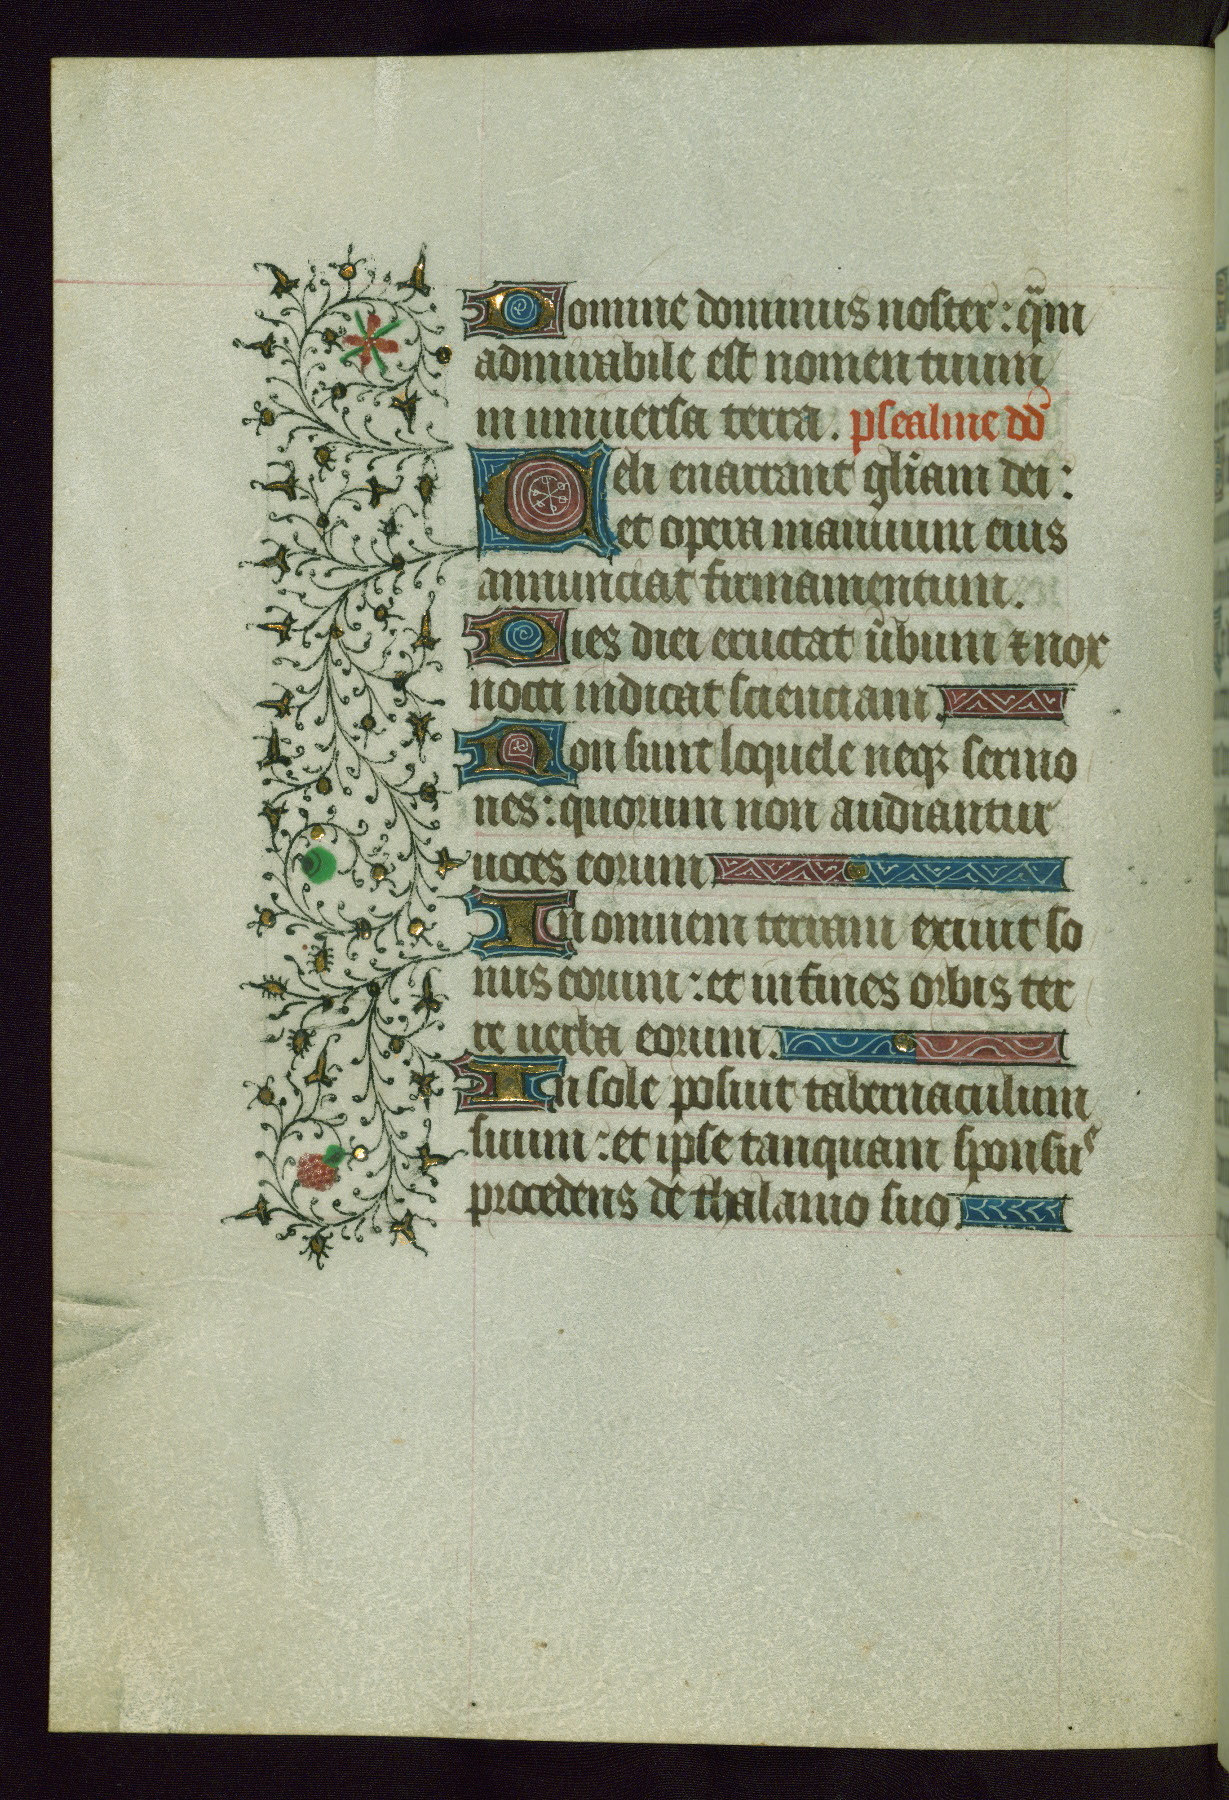 Domine dominus noster: q̄m
admirabile est nomen tuum
in uniuersa terra. psealme dd
Celi enarrant gl̄iam dei:
et opera manuum eius
annunciat firmamentum.
Dies diei eructat ūbum ⁊ nox
nocti indicat scienciam.
Non sunt loquele neqꝫ sermo
nes: quorum non audiantur
uoces eorum
In omnem terram exiuit so
nus eorum: et in fines orbis ter
re uerba eorum.
In sole posuit tabernaculum
suum: et ipse tanquam sponsus
procedens de thalamo suo.